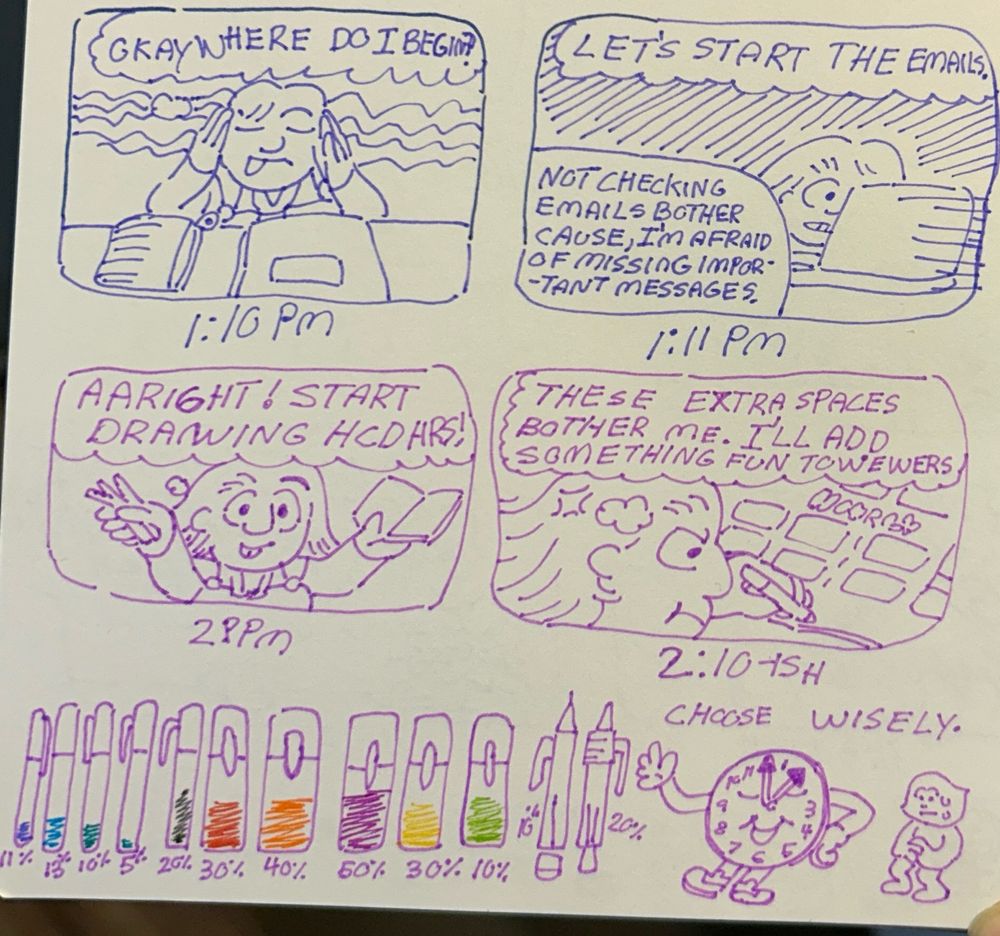 OKAY WHERE DO I BEGIN?
1:10 PM
LET'S START THE EMAILS.
NOT CHECKING
EMAILS BOTHER
CAUSE, I'M AFRAID
OF MISSING IMPOR-
-TANT MESSAGES.
1:11 PM
AARIGHT! START
DRAWING HCDHRS!
2PM
THESE EXTRA SPACES
BOTHER ME. I'LL ADD
SOMETHING FUN TO WEWERS
2:10-ISH
CHOOSE WISELY.
11 1 3 4 5 6 7 8 9
11% 15% 10% 5% 20% 30% 40% 60% 30% 10% 10% 20%